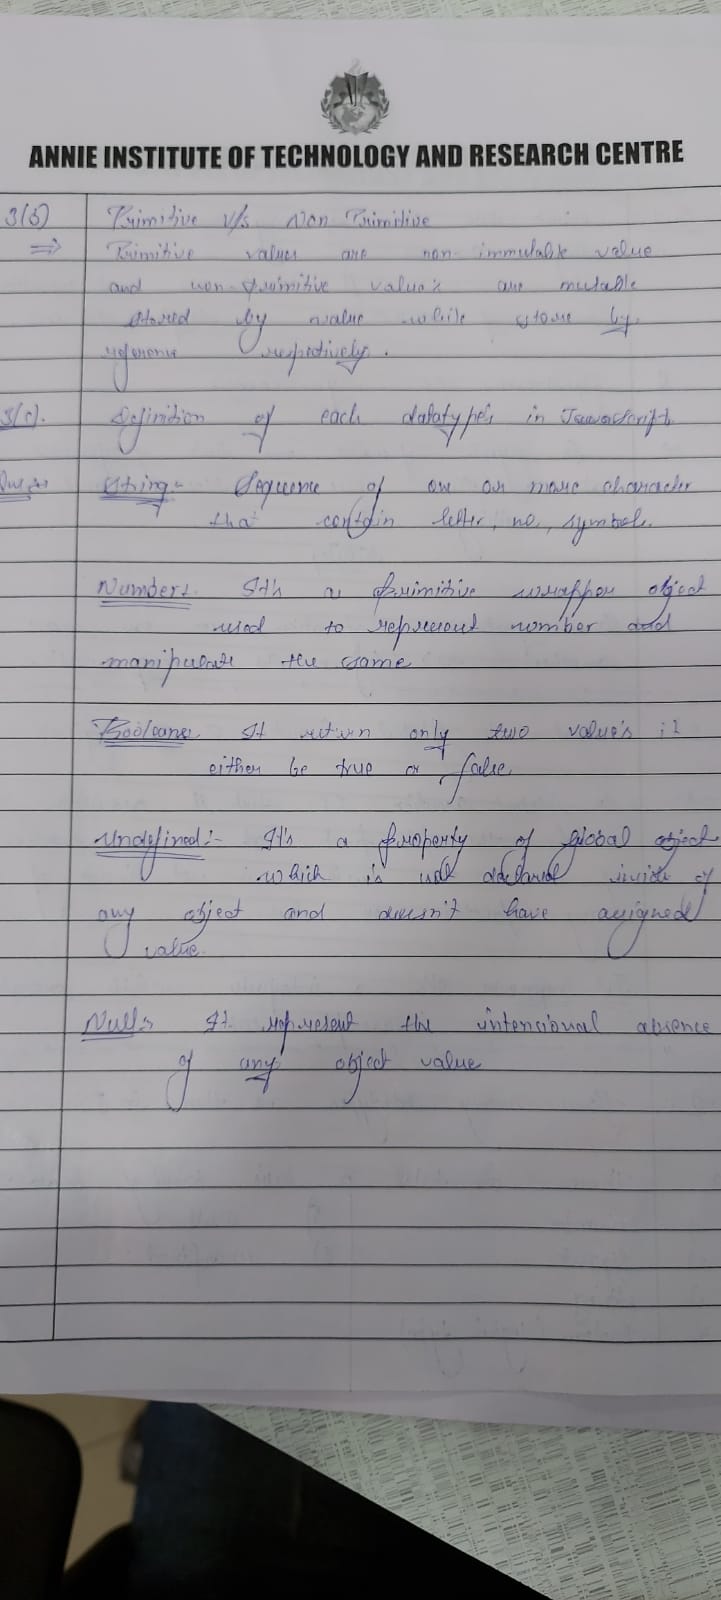 ANNIE INSTITUTE OF TECHNOLOGY AND RESEARCH CENTRE
3(b) Primitive v/s Non Primitive
⇒ Primitive values are non immutable value
and non-primitive value's are mutable
stored by value while store by
reference respectively.
3(c). Definition of each datatype's in Javascript
String:- Sequence of one or more character
that contain letter, no, symbols.
Number:- It's a primitive wrapper object
used to represent number and
manipulate the same
Boolean:- It return only two value's i?
either be true or false.
Undefined:- It's a property of global object
which is not declared inside of
any object and doesn't have assigned
value.
Null:- It represent the intensional absence
of any object value